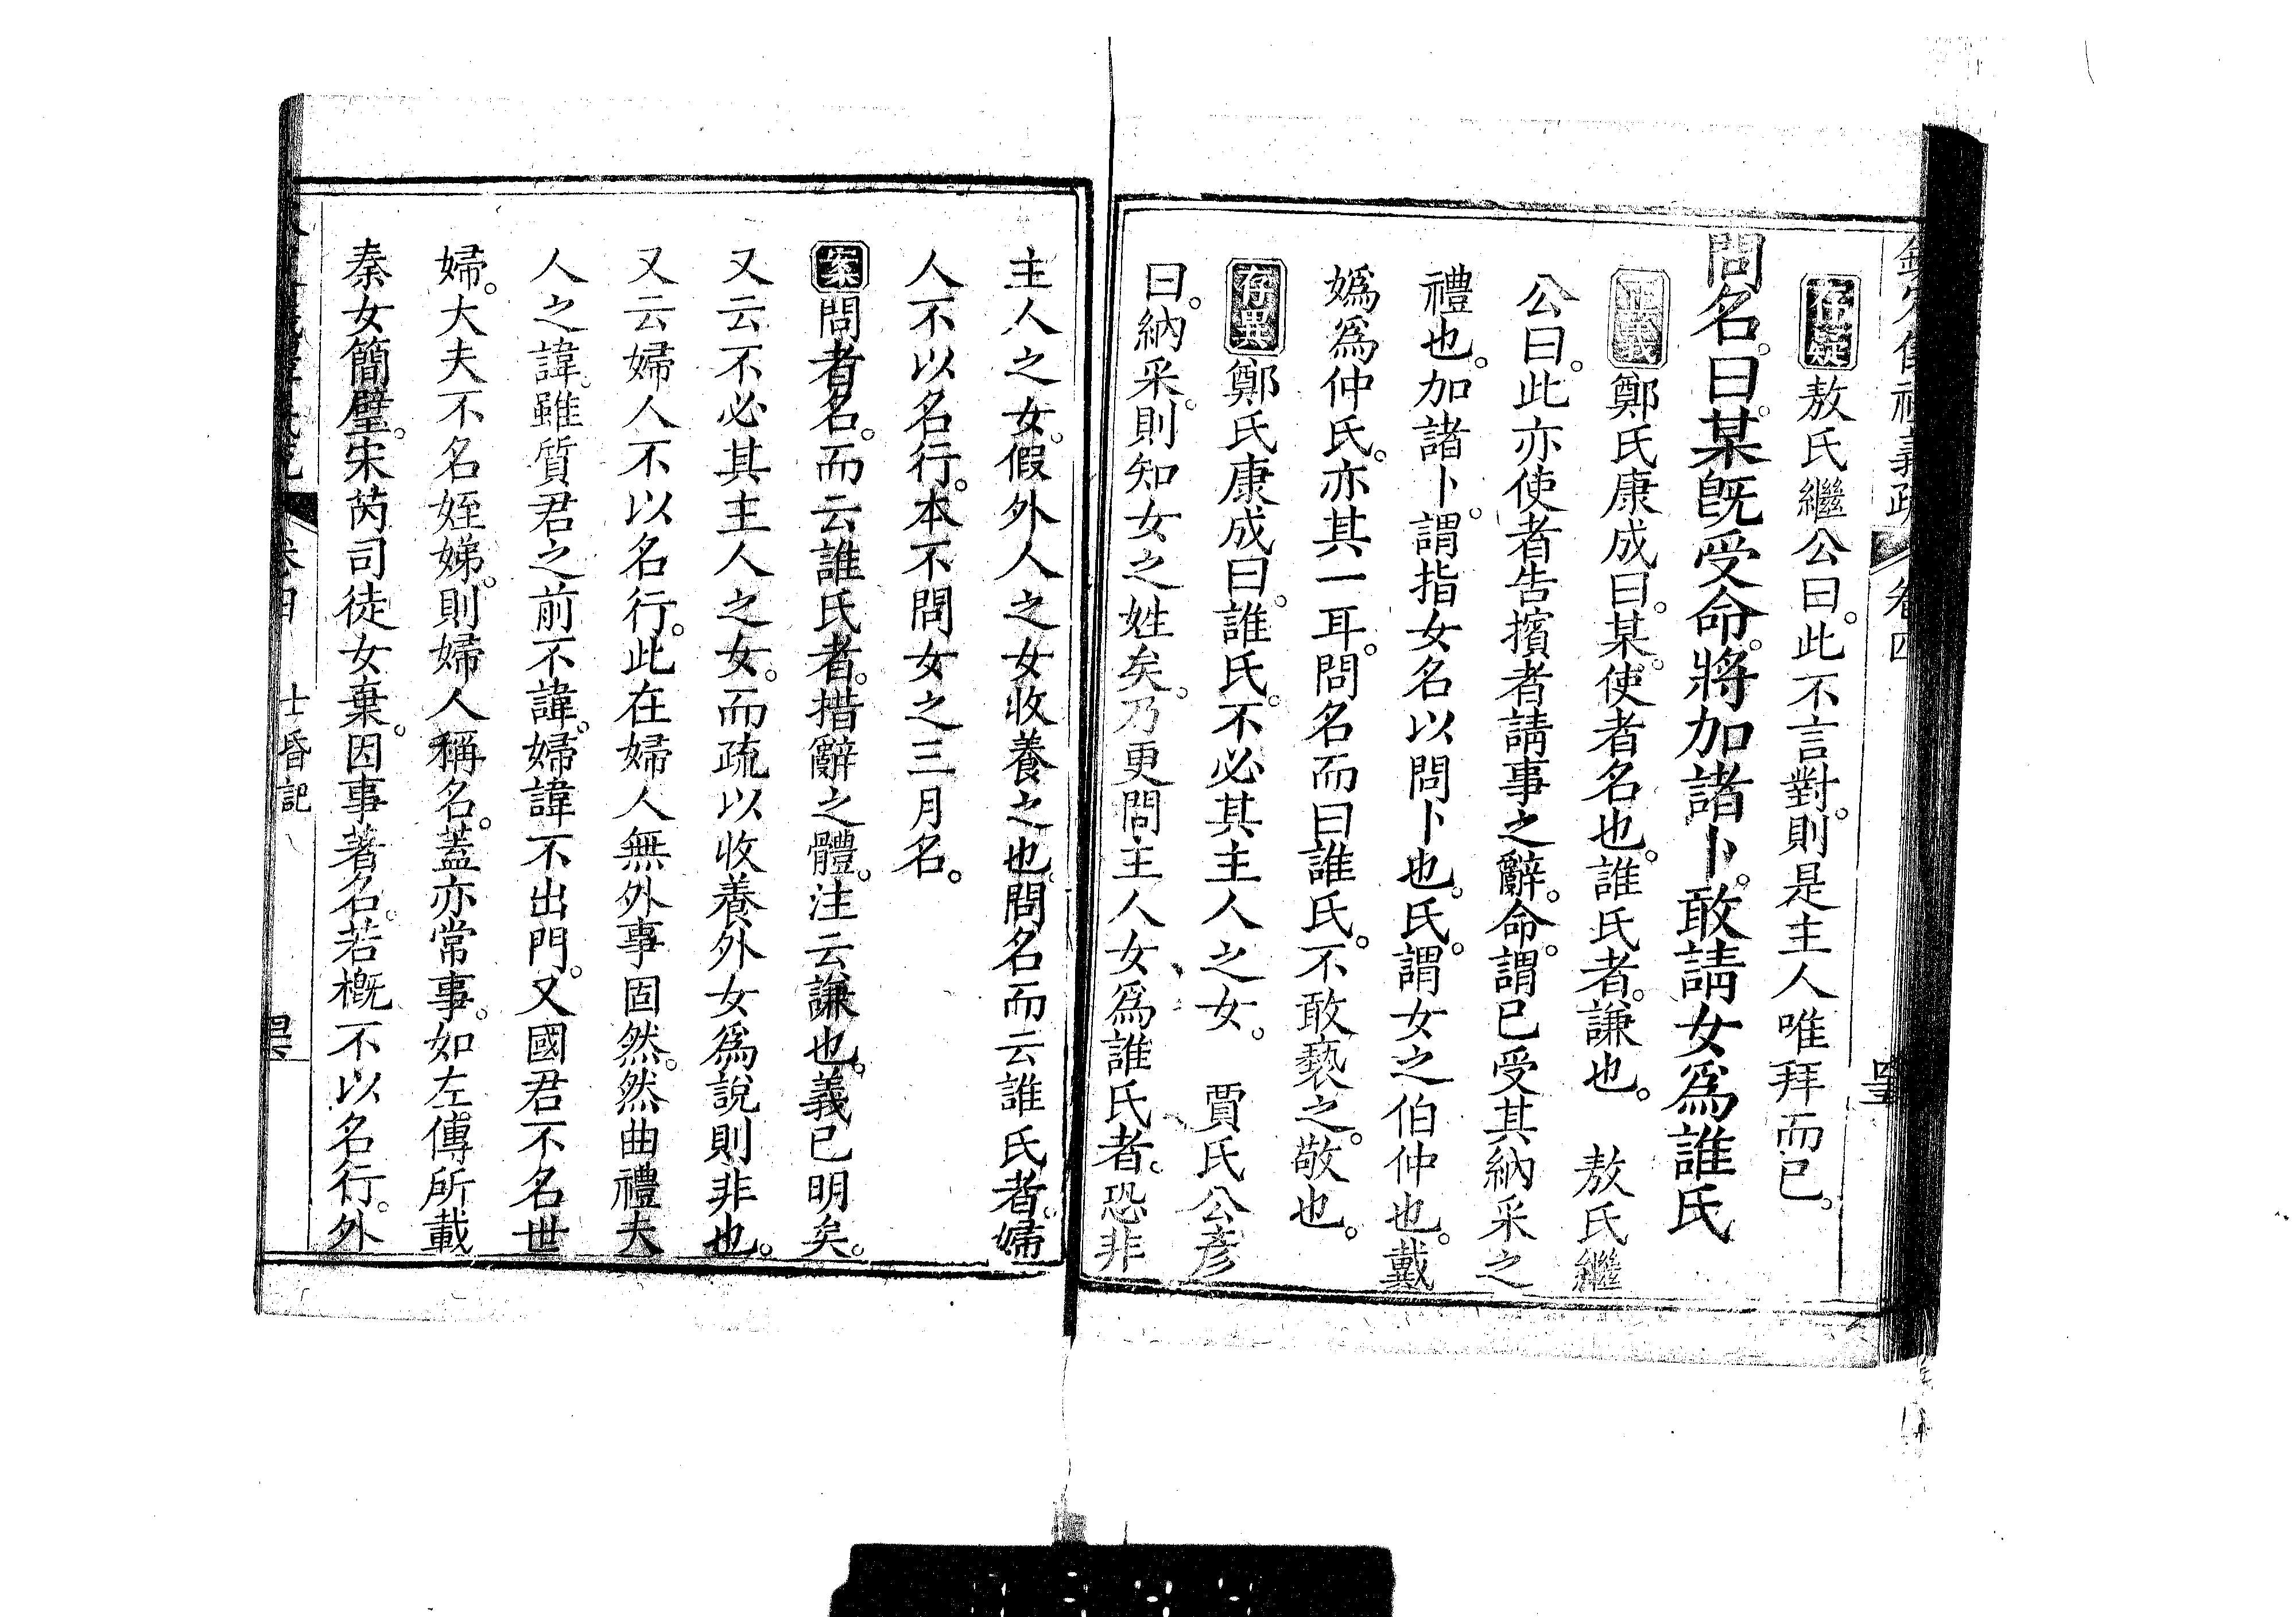 欽定儀禮義疏 卷四
存疑敖氏繼公曰。此不言對。則是主人唯拜而已。
問名。曰。某旣受命。將加諸卜。敢請女爲誰氏
正義鄭氏康成曰。某。使者名也。誰氏者。謙也。 敖氏繼
公曰。此亦使者告擯者請事之辭。命。謂已受其納采之
禮也。加諸卜。謂指女名以問卜也。氏。謂女之伯仲也。戴
嬀爲仲氏。亦其一耳。問名而曰誰氏。不敢褻之。敬也。
存異鄭氏康成曰。誰氏。不必其主人之女。 賈氏公彥
曰。納采。則知女之姓矣。乃更問主人女爲誰氏者。恐非
主人之女。假外人之女收養之也。問名而云誰氏者。婦
人不以名行。本不問女之三月名。
案問者名。而云誰氏者。措辭之體。注云謙也。義已明矣。
又云不必其主人之女。而疏以收養外女爲說則非也。
又云婦人不以名行。此在婦人無外事固然。然曲禮夫
人之諱。雖質君之前不諱。婦諱不出門。又國君不名世
婦。大夫不名姪娣。則婦人稱名。蓋亦常事。如左傳所載
秦女簡璧。宋芮司徒女棄。因事著名。若槪不以名行。外
士昏記